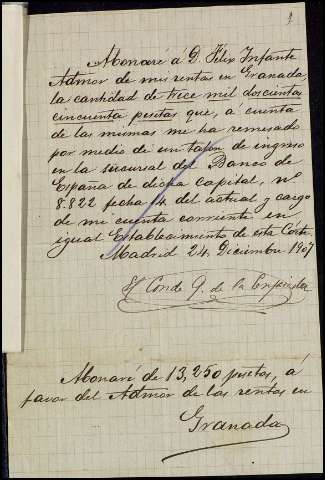 1
Abonaré á D. Félix Infante
Admor de mis rentas en Granada,
la cantidad de trece mil doscientas
cincuenta pesetas que, á cuenta
de las mismas me ha remesado
por medio de un talon de ingreso
en la sucursal del Banco de
España de dicha capital, nº
8.822 fecha 14 del actual y cargo
de mi cuenta corriente en
igual Establecimiento de esta Córte.
Madrid 24 Diciembre 1907
El Conde de la
Abonaré de 13,250 pesetas, á
favor del Admor de las rentas en
Granada